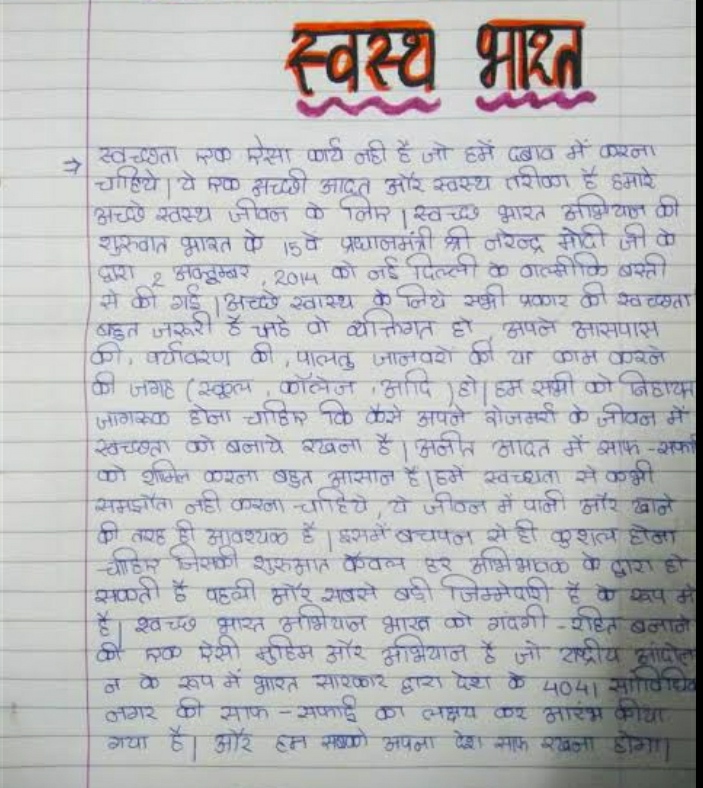 स्वस्थ भारत
→ स्वच्छता एक ऐसा कार्य नही है जो हमें दबाव में करना
चाहिये | ये एक अच्छी आदत और स्वस्थ तरीका है हमारे
अच्छे स्वस्थ जीवन के लिए | स्वच्छ भारत अभियान की
शुरुवात भारत के 15वे प्रधानमंत्री श्री नरेन्द्र मोदी जी के
द्वारा 2 अक्टूम्बर, 2014 को नई दिल्ली के वाल्मीकि बस्ती
से की गई | अच्छे स्वास्थ के लिये सभी प्रकार की स्वच्छता
बहुत जरूरी है चाहे वो व्यक्तिगत हो, अपने आसपास
की, पर्यावरण की, पालतु जानवरो की या काम करने
की जगह (स्कूल, कॉलेज, आदि) हो | हम सभी को निहायत
जागरूक होना चाहिए कि कैसे अपने रोजमर्रा के जीवन में
स्वच्छता को बनाये रखना है | अपनी आदत में साफ-सफाई
को शामिल करना बहुत आसान है | हमे स्वच्छता से कभी
समझौता नही करना चाहिये, ये जीवन में पानी और खाने
की तरह ही आवश्यक है | इसमें बचपन से ही कुशल होना
चाहिए जिसकी शुरुआत केवल हर अभिभावक के द्वारा हो
सकती है पहली और सबसे बडी जिम्मेदारी है के रूप में
है | स्वच्छ भारत अभियान भारत को गंदगी-रहित बनाने
की एक ऐसी मुहिम और अभियान है जो राष्ट्रीय आंदोल
न के रूप में भारत सारकार द्वारा देश के 4041 सांविधिक
नगर की साफ-सफाई का लक्षय कर आरंभ कीया
गया है | और हम सबको अपना देश साफ रखना होगा |